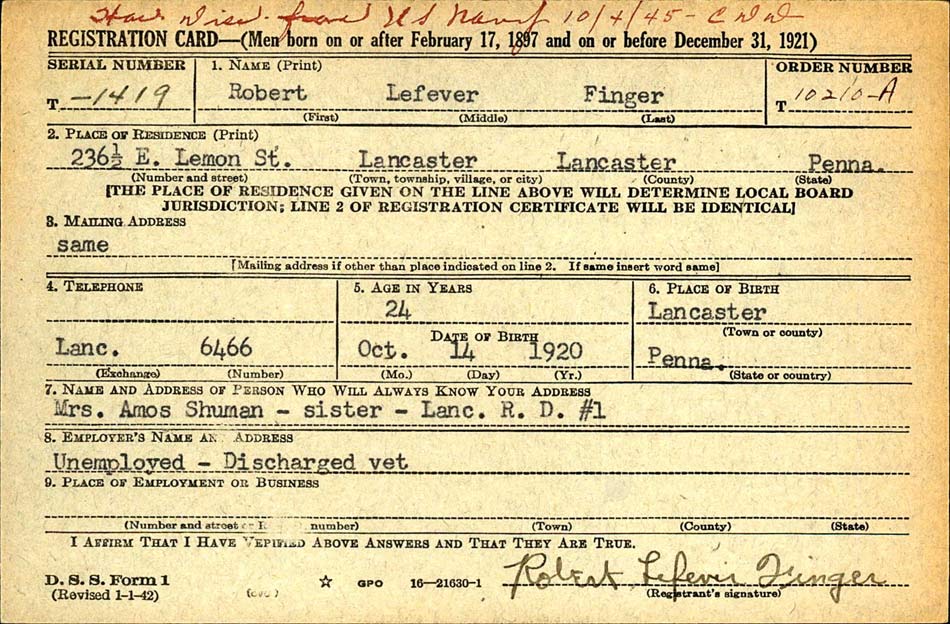 Hon Disc. from US Navy 10/4/45 - CWW
REGISTRATION CARD—(Men born on or after February 17, 1897 and on or before December 31, 1921)
SERIAL NUMBER 1. NAME (Print) ORDER NUMBER
T -1419 Robert Lefever Finger T 10210-A
(First) (Middle) (Last)
2. PLACE OF RESIDENCE (Print)
236½ E. Lemon St. Lancaster Lancaster Penna.
(Number and street) (Town, township, village, or city) (County) (State)
[THE PLACE OF RESIDENCE GIVEN ON THE LINE ABOVE WILL DETERMINE LOCAL BOARD
JURISDICTION; LINE 2 OF REGISTRATION CERTIFICATE WILL BE IDENTICAL]
3. MAILING ADDRESS
same
[Mailing address if other than place indicated on line 2. If same insert word same]
4. TELEPHONE 5. AGE IN YEARS 6. PLACE OF BIRTH
24 Lancaster
DATE OF BIRTH (Town or county)
Lanc. 6466 Oct. 14 1920 Penna.
(Exchange) (Number) (Mo.) (Day) (Yr.) (State or country)
7. NAME AND ADDRESS OF PERSON WHO WILL ALWAYS KNOW YOUR ADDRESS
Mrs. Amos Shuman - sister - Lanc. R. D. #1
8. EMPLOYER'S NAME AND ADDRESS
Unemployed - Discharged vet
9. PLACE OF EMPLOYMENT OR BUSINESS
(Number and street or R number) (Town) (County) (State)
I AFFIRM THAT I HAVE VERIFIED ABOVE ANSWERS AND THAT THEY ARE TRUE.
D. S. S. Form 1 ☆ GPO 16—21630-1 Robert Lefever Finger
(Revised 1-1-42) (over) (Registrant's signature)